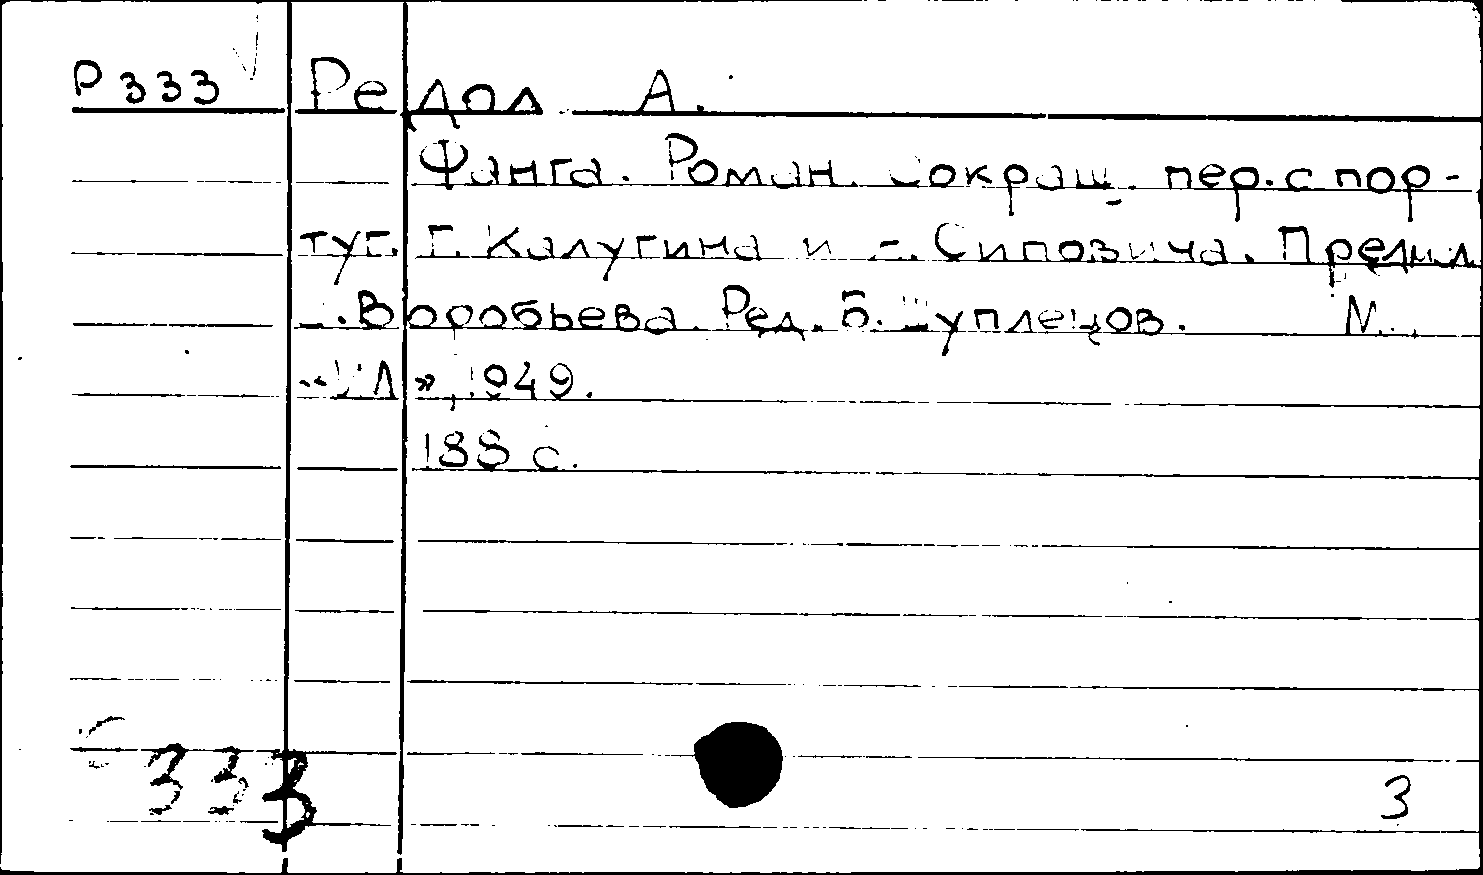 Р333 Редол А.
Фанга. Роман. Сокращ. пер. с пор-
туг. Г. Калугина и Сиповича. Предисл.
Воробьева. Ред. Б. Шуплецов. М.,
«ИЛ», 1949.
188 с.
333
3